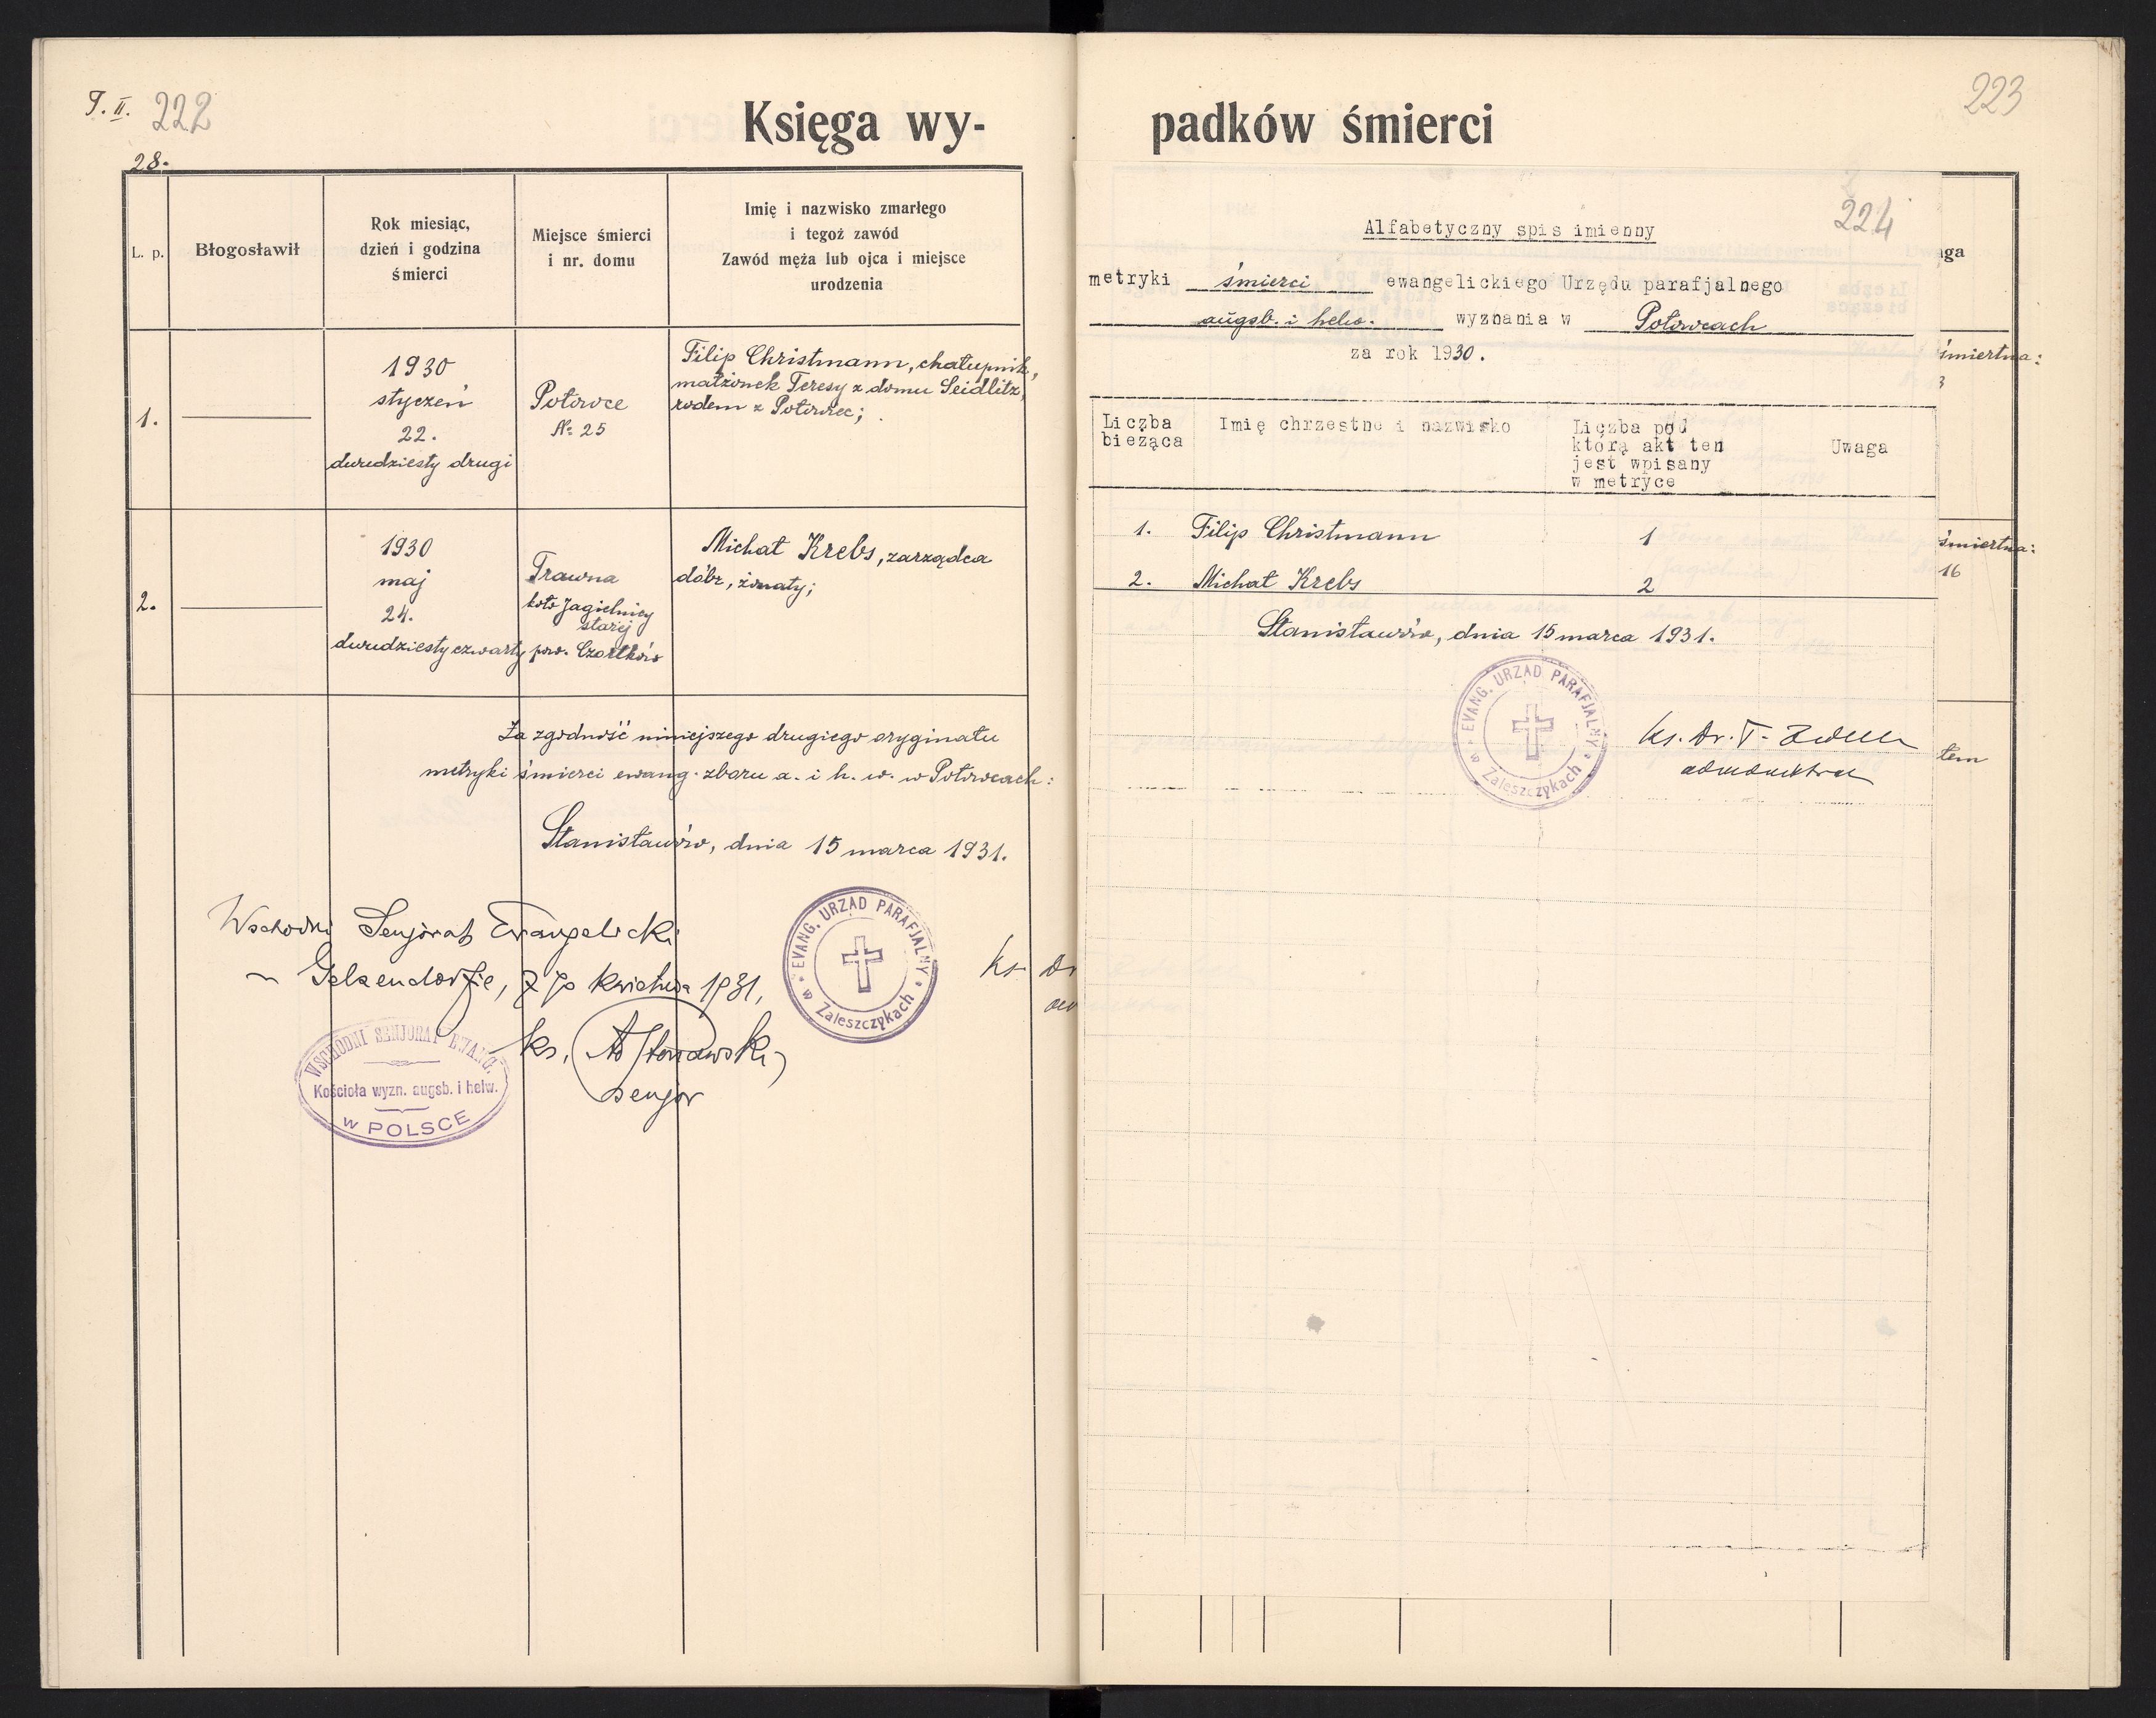 T. II. 222
28.
Księga wy-
L. p.
Błogosławił
Rok miesiąc,
dzień i godzina
śmierci
Miejsce śmierci
i nr. domu
Imię i nazwisko zmarłego
i tegoż zawód
Zawód męża lub ojca i miejsce
urodzenia
1.
1930
styczeń
22.
dwudziesty drugi
Potoice
№ 25
Filip Christmann, chałupnik,
małżonek Teresy z domu Seidlitz,
rodem z
2.
1930
maj
24.
dwudziesty czwarty
Trawna
koło Jagielnicy
starej
pow. Czortków
Michał Krebs, zarządca
dóbr, żonaty;
Za zgodność niniejszego drugiego oryginału
metryki śmierci ewang. zboru a. i h. w. w
Stanisławów, dnia 15 marca 1931.
Wschodni Senjorat Ewangelicki
Gelsendorfie, kwietnia 1931,
ks.
senjor
WSCHODNI SENJORAT EWANG.
Kościoła wyzn. augsb. i helw.
w POLSCE
EVANG. URZĄD PARAFJALNY
w Zaleszczykach
ks. Dr
padków śmierci
223
224
Alfabetyczny spis imienny
metryki śmierci ewangelickiego Urzędu parafjalnego
augsb. i helw. wyznania w
za rok 1930.
Liczba
bieżąca
Imię chrzestne i nazwisko
Liczba pod
którą akt ten
jest wpisany
w metryce
Uwaga
1. Filip Christmann 1
2. Michał Krebs 2
Stanisławów, dnia 15 marca 1931.
EVANG. URZĄD PARAFJALNY
w Zaleszczykach
ks. Dr. T.
administrator
aga
śmiertna:
3
śmiertna:
16
tem